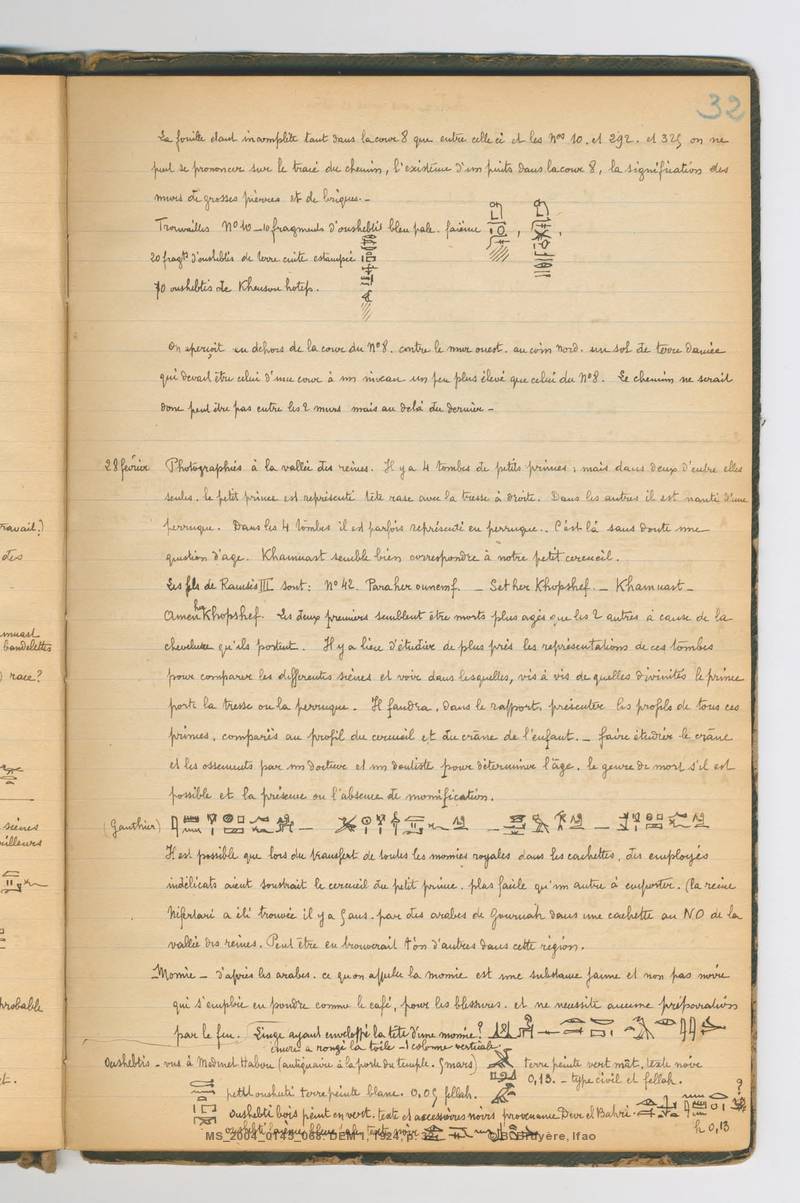 32
La fouille étant incomplète tant dans la cour 8 que entre celle ci et les Nos 10. et 292. et 325 on ne
peut se prononcer sur le tracé du chemin, l'existence d'un puits dans la cour 8, la signification des
murs de grosses pierres et de briques. -
Trouvailles N° 10 - 10 fragments d'oushebtis bleu pale. faience
20 fragts d'oushebtis de terre cuite estampée
10 oushebtis de Khensou hotep.
On aperçoit en dehors de la cour du N° 8. contre le mur ouest. au coin nord. un sol de terre damée
qui devait être celui d'une cour à un niveau un peu plus élevé que celui du N° 8. Le chemin ne serait
donc peut être pas entre les 2 murs mais au delà du dernier -
28 février Photographies à la vallée des reines. Il y a 4 tombes de petits princes ; mais dans deux d'entre elles
seules, le petit prince est représenté tête rase avec la tresse à droite. Dans les autres il est nanti d'une
perruque. Dans les 4 tombes il est parfois représenté en perruque. C'est là sans doute une
question d'age. Khamuast semble bien correspondre à notre petit cercueil.
Les fils de Ramsès III sont : N° 42. Para her ounemf. - Set her Khopshef. - Khamuast -
Amen her Khopshef. Les deux premiers semblent être morts plus agés que les 2 autres à cause de la
chevelure qu'ils portent. Il y a lieu d'étudier de plus près les représentations de ces tombes
pour comparer les différentes scènes et voir dans lesquelles, vis à vis de quelles divinités le prince
porte la tresse ou la perruque. Il faudra, dans le rapport, présenter les profils de tous ces
princes, comparés au profil du cercueil et du crâne de l'enfant. - faire étudier le crâne
et les ossements par un docteur et un dentiste pour déterminer l'âge, le genre de mort s'il est
possible et la présence ou l'absence de momification.
(Gauthier)
Il est possible que lors du transfert de toutes les momies royales dans les cachettes, des employés
indélicats aient soustrait le cercueil du petit prince, plus facile qu'un autre à emporter. (la reine
Nefertari a été trouvée il y a 5 ans. par des arabes de Gournah dans une cachette au NO de la
vallée des reines. Peut être en trouverait t'on d'autres dans cette région.
Momie - d'après les arabes. ce qu'on appelle la momie est une substance jaune et non pas noire
qui s'emploie en poudre comme le café, pour les blessures. et ne nécessite aucune préparation
par le feu. Linge ayant enveloppé la tête d'une momie ?
encre a rongé la toile - 1 colonne verticale
Oushebtis - vus à Medinet Habou (antiquaire à la porte du temple. 5 mars) terre peinte vert mât, texte noir
0,13. - type civil et fellah.
petit oushebti terre peinte blanc. 0,05 fellah.
Oushebti bois peint en vert. texte et accessoires noirs provenance Deir el Bahri.
h 0,13
MS_2004_0145_068. DEM 1, 1924, p. 32 © B. Bruyère, Ifao
travail ?)
des
bandelettes
race ?
scènes
probable